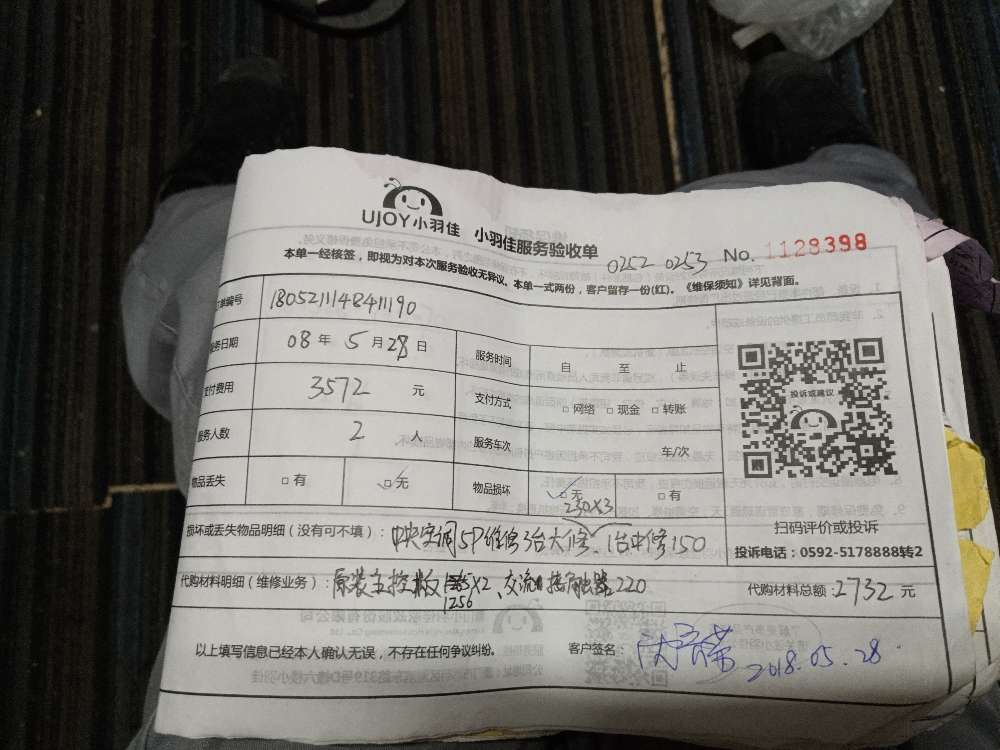 UJOY小羽佳 小羽佳服务验收单 0252 0253 No. 1128398
本单一经核签，即视为对本次服务验收无异议、本单一式两份，客户留存一份(红)。《维保须知》详见背面。
单编号 180521114841190
务日期 08 年 5 月 28 日 服务时间 自 至 止
支付费用 3572 元 支付方式 □ 网络 □ 现金 □ 转账
投诉或建议
服务人数 2 人 服务车次 车/次
物品丢失 □ 有 □ 无 物品损坏 □ 无 □ 有
扫码评价或投诉
投诉电话：0592-5178888转2
230X3
损坏或丢失物品明细（没有可不填）：中央空调5P维修3台大修、1台中修150
代购材料明细（维修业务）：原装主控板 X2、交流接触器220 代购材料总额：2732 元
1256
以上填写信息已经本人确认无误，不存在任何争议纠纷。 客户签名： 2018.05.28